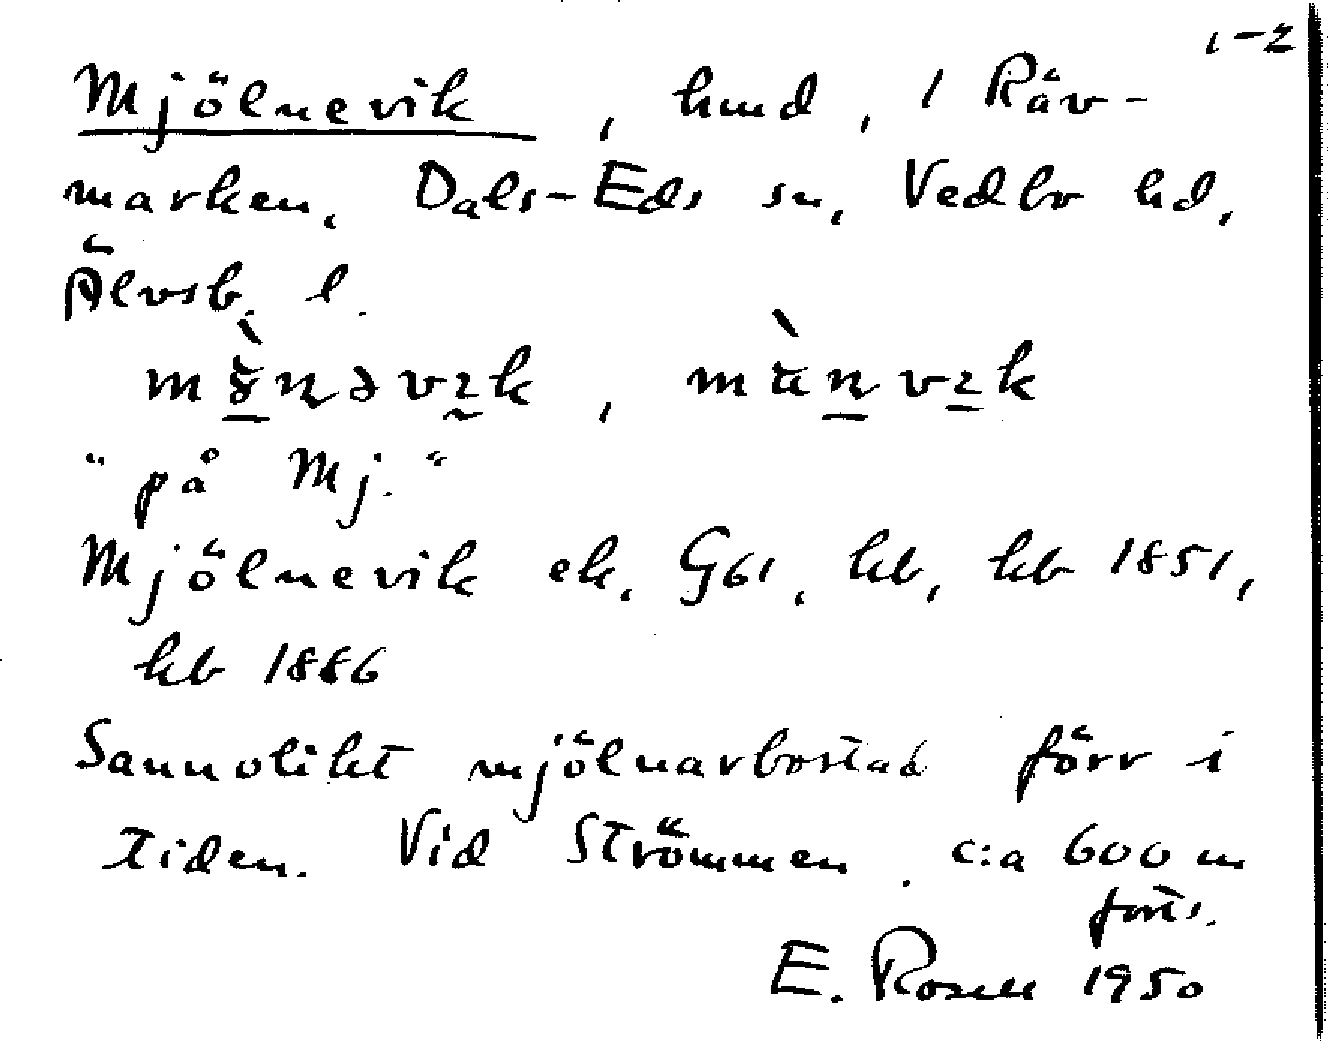 1-2
Mjölnevik, hmd, 1 Räv-
marken, Dals-Eds sn, Vedbo hd,
Älvsb. l.
"på Mj."
Mjölnevik ek, G61, kb, kb 1851,
kb 1886
Sannolikt mjölnarbostad förr i
tiden. Vid Strömmen. c:a 600 m
forts.
E. Rosell 1950